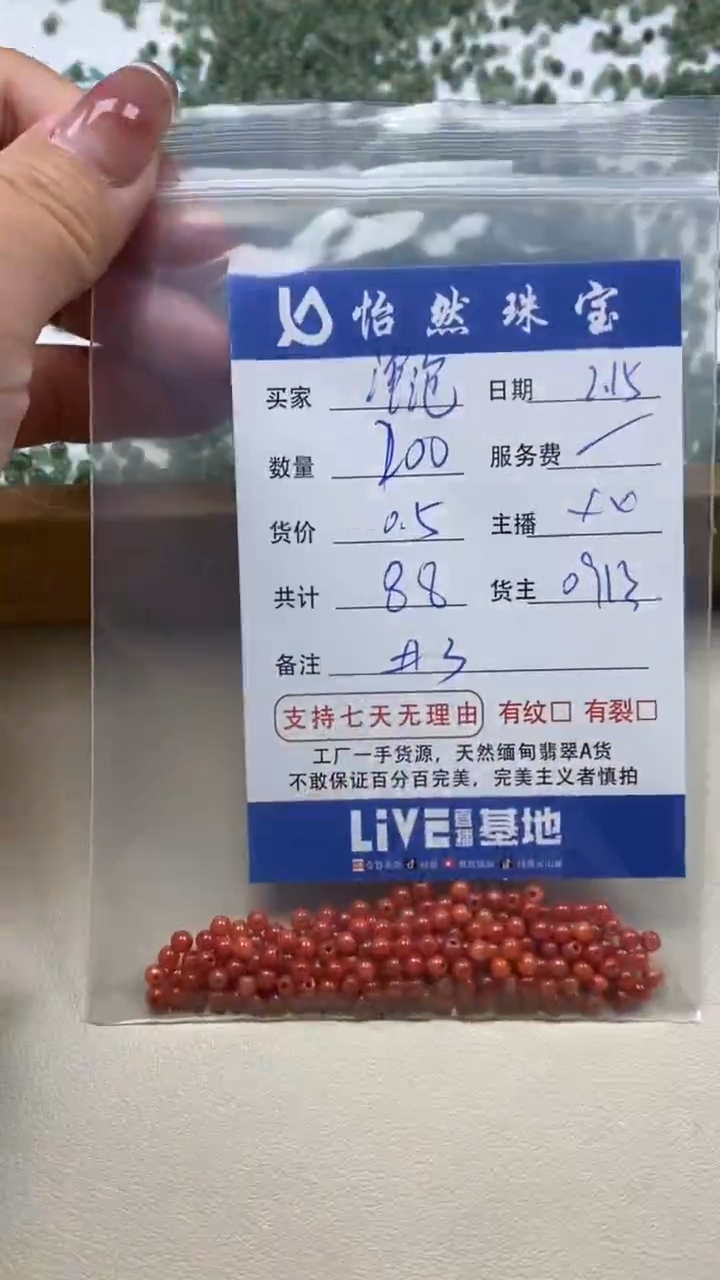 怡然珠宝
买家 日期 2.15
数量 200 服务费 /
货价 0.5 主播
共计 88 货主 0913
备注 #3
支持七天无理由 有纹□ 有裂□
工厂一手货源，天然缅甸翡翠A货
不敢保证百分百完美，完美主义者慎拍
LiVE直播基地